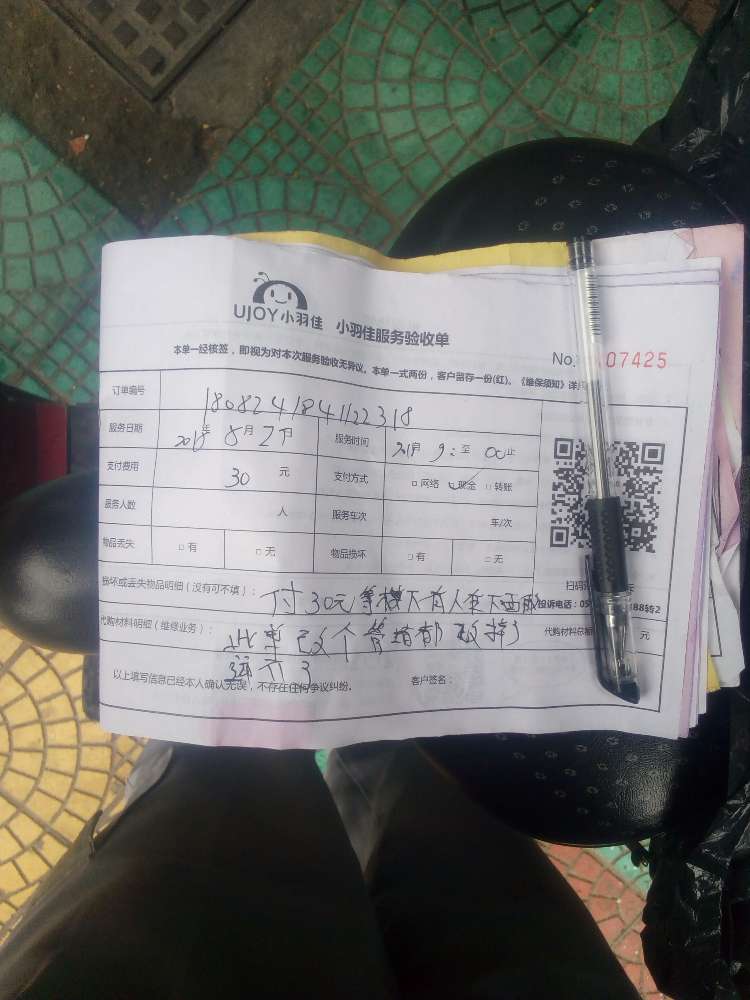 UJOY小羽佳 小羽佳服务验收单
No. 07425
本单一经核签，即视为对本次服务验收无异议。本单一式两份，客户留存一份(红)。《维保须知》详
订单编号 180824184122318
服务日期 2018年8月2 服务时间 9: 至 00止
支付费用 30 元 支付方式 □网络 现金 □转账
服务人数 人 服务车次 车/次
物品丢失 □有 □无 物品损坏 □有 □无
损坏或丢失物品明细（没有可不填）： 付30元 楼下有人在下面
扫码
投诉电话：05 88转2
代购材料明细（维修业务）： 此单 改个管 都
代购材料总额 元
以上填写信息已经本人确认无误，不存在任何争议纠纷。 客户签名：